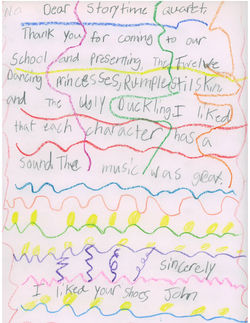 No. Dear Storytime Quartet.
Thank you for coming to our
School and presenting, The Twelve
Dancing princesses, Rumplestilskin,
and The Ugly Duckling I liked
that each character has a
sound The music was great.
sincerely
I liked your shoes John